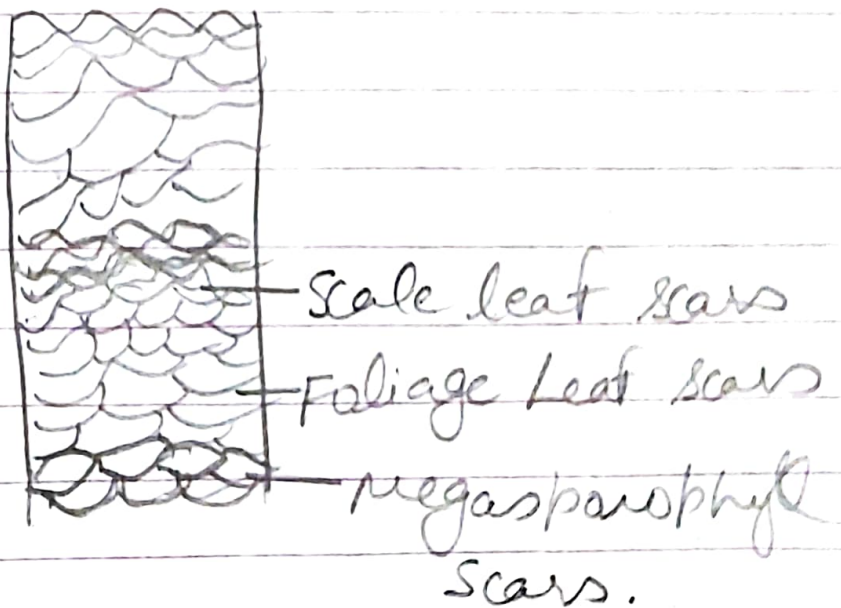 Scale leaf scars
Foliage Leaf scars
Megasporophyll
Scars.